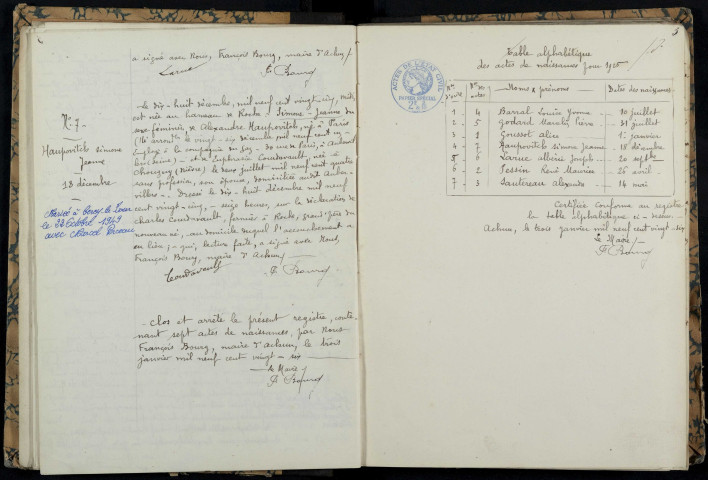 a signé avec Nous, François Bourg, maire d'Achun /.
Larue F. Bourg
N° 7
Haupovitch Simone
Jeanne
18 décembre
Mariée à Cercy la Tour
le 22 Octobre 1949
avec Marcel
Le dix-huit décembre, mil neuf cent vingt-cinq,
est née au hameau de Roche : Simone-Jeanne du
sexe féminin, de Alexandre Haupovitch, né à Paris
le vingt-six décembre mil neuf cent
employé à la compagnie du gaz,
et de Euphrasie Coudavault, née à
(Nièvre) le deux juillet mil neuf cent quatre
sans profession, son épouse, domiciliés audit Auber-
villiers. Dressé le dix-huit décembre mil neuf
cent vingt-cinq, seize heures, sur la déclaration de
Charles Coudavault, fermier à Roche, grand'père du
nouveau né, au domicile duquel l'accouchement a
eu lieu, qui, lecture faite, a signé avec Nous,
François Bourg, maire d'Achun /.
Coudavault F. Bourg
Clos et arrêté le présent registre, conte-
nant sept actes de naissances, par Nous
François Bourg, maire d'Achun, le trois
janvier mil neuf cent vingt-six
Le Maire /
F. Bourg
Table alphabétique
des actes de naissances pour 1925
ACTES DE L'ETAT CIVIL
PAPIER SPECIAL
Nos d'ordre Nos des actes Noms & prénoms Dates des naissances
1 4 Barral Louise Yvonne 10 juillet
2 5 Godard Marcelin Pierre 31 juillet
3 1 Gousset Alice 1er janvier
4 7 Haupovitch Simone Jeanne 18 décembre
5 6 Larue Albéric Joseph 20 septbre
6 2 Tessin René Maurice 26 avril
7 3 Gautereau Alexandre 14 mai
Certifiée conforme au registre
la table alphabétique ci-dessus.
Achun, le trois janvier mil neuf cent vingt-six
Le Maire /
F. Bourg